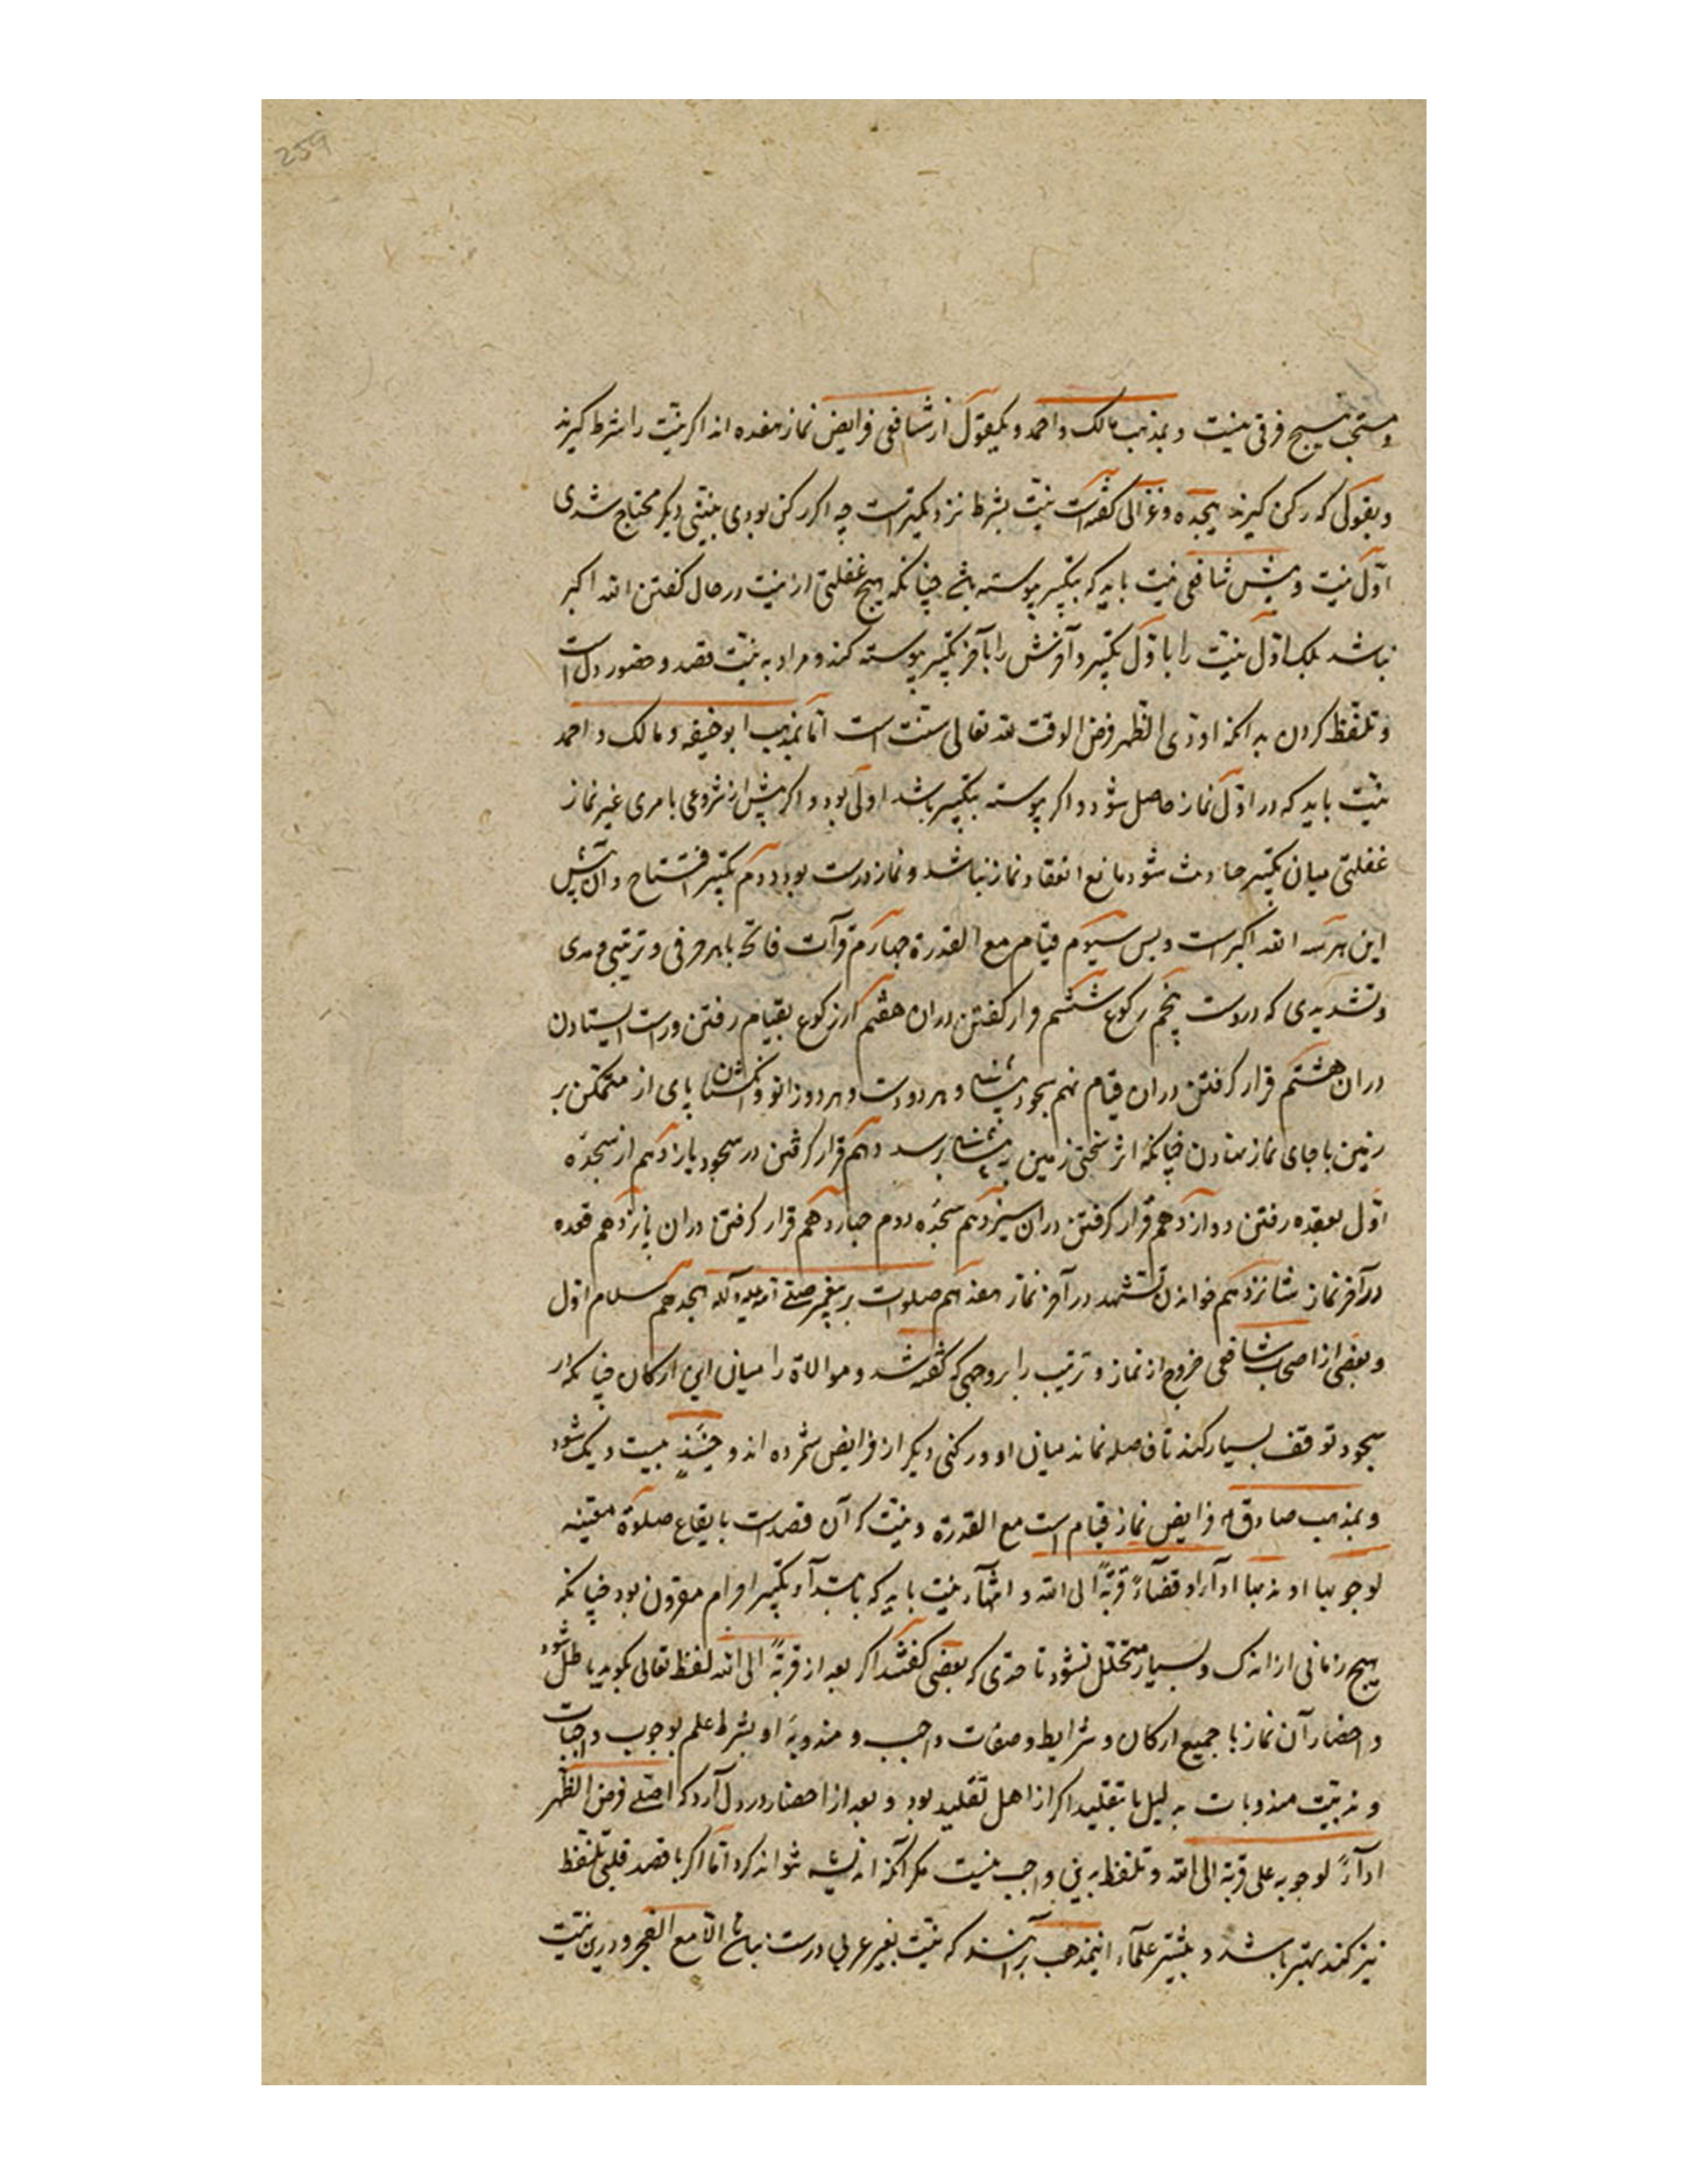 259
و مستحب هیچ فرقی نیست و بمذهب مالک و احمد و بیکقول از شافعی فرایض نماز هفده اند اکر نیت را شرط کیرند
و بقولی که رکن کیرند هیجده و غزالی کفته است نیت بشرط نزدیکتر است چه اکر رکن بودی بنیتی دیکر محتاج شدی
اول نیت و پیش شافعی نیت باید که بتکبیر پیوسته باشد چنانکه هیچ غفلتی از نیت در حال کفتن الله اکبر
نباشد بلک اول نیت را با اول تکبیر و آخرش را بآخر تکبیر پیوسته کند و مراد به نیت قصد و حضور دل است
و تلفظ کردن بدانکه اودی الظهر فرض الوقت لله تعالی سنت است اما بمذهب ابوحنیفه و مالک و احمد
نیت باید که در اول نماز حاصل شود و اکر پیوسته بتکبیر باشد اولی بود و اکر پیش از شروعی بامری غیر نماز
غفلتی میان تکبیر حادث شود مانع انعقاد نماز نباشد و نماز درست بود دوم تکبیر افتتاح و آن پیش
این هر سه الله اکبر است و بس سیوم قیام مع القدرة چهارم قرآت فاتحه با هر حرفی و ترتیبی و مدی
و تشدیدی که دروست پنجم رکوع ششم قرار کفتن دران هفتم از رکوع بقیام رفتن و راست ایستادن
دران هشتم قرار کرفتن دران قیام نهم سجود پیشانی و هر دو دست و هر دو زانو و انکشتان پای از متمکن بر
زمین یا جای نماز نهادن چنانکه اثر سختی زمین به پیشانی برسد دهم قرار کرفتن در سجود یازدهم از سجدهٔ
اول بعقده رفتن دوازدهم قرار کرفتن دران سیزدهم سجدهٔ دوم چهاردهم قرار کرفتن دران پانزدهم قعده
در آخر نماز شانزدهم خواندن تشهد در آخر نماز هفدهم صلوات بر پیغمبر صلی الله علیه و آله هیجدهم سلام اول
و بعضی از اصحاب شافعی خروج از نماز و ترتیب را بر وجهی که کفته شد و موالاة را میان این ارکان چنانکه در
سجود توقف بسیار کند تا فاصله نماند میان او و رکنی دیکر از فرایض شمرده اند و حینئذ بیست و یک شود
و بمذهب صادق فرایض نماز قیام است مع القدرة و نیت که آن قصد است بایقاع صلوة معینه
لوجوبها او ندبها اداء او قضاء قربة الی الله و انتهاء نیت باید که بابتداء تکبیر احرام مقرون بود چنانکه
هیچ زمانی از اندک و بسیار متخلل نشود تا حدی که بعضی کفتند اکر بعد از قربة الی الله لفظ تعالی بکوید باطل شود
و احضار آن نماز با جمیع ارکان و شرایط و صفات واجب و مندوبهٔ او بشرط علم بوجوب واجبات
و ندبیت مندوبات بدلیل یا بتقلید اکر از اهل تقلید بود و بعد از احضار در دل آرد که اصلی فرض الظهر
اداء لوجوبه علی قربة الی الله و تلفظ بدین واجب نیست مکر آنکه اندیشه نتواند کرد اما اکر با قصد قلبی تلفظ
نیز کند بهتر باشد و بیشتر علماء اینمذهب برآنند که نیت بغیر عربی درست نباشد الا مع العجز و درین نیت